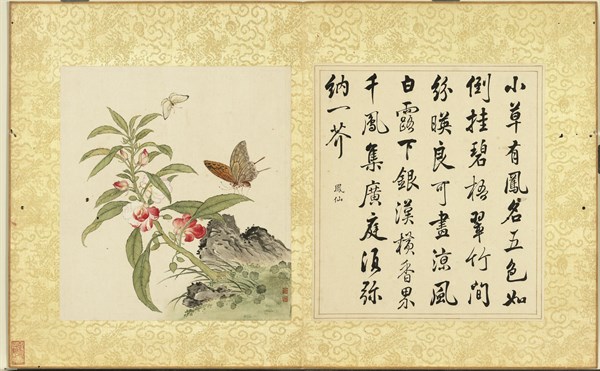 小草有鳳名五色如
倒挂碧梧翠竹間
紛暎良可盡涼風
白露下銀漢橫香界
千鳳集廣庭須弥
納一芥
鳳仙